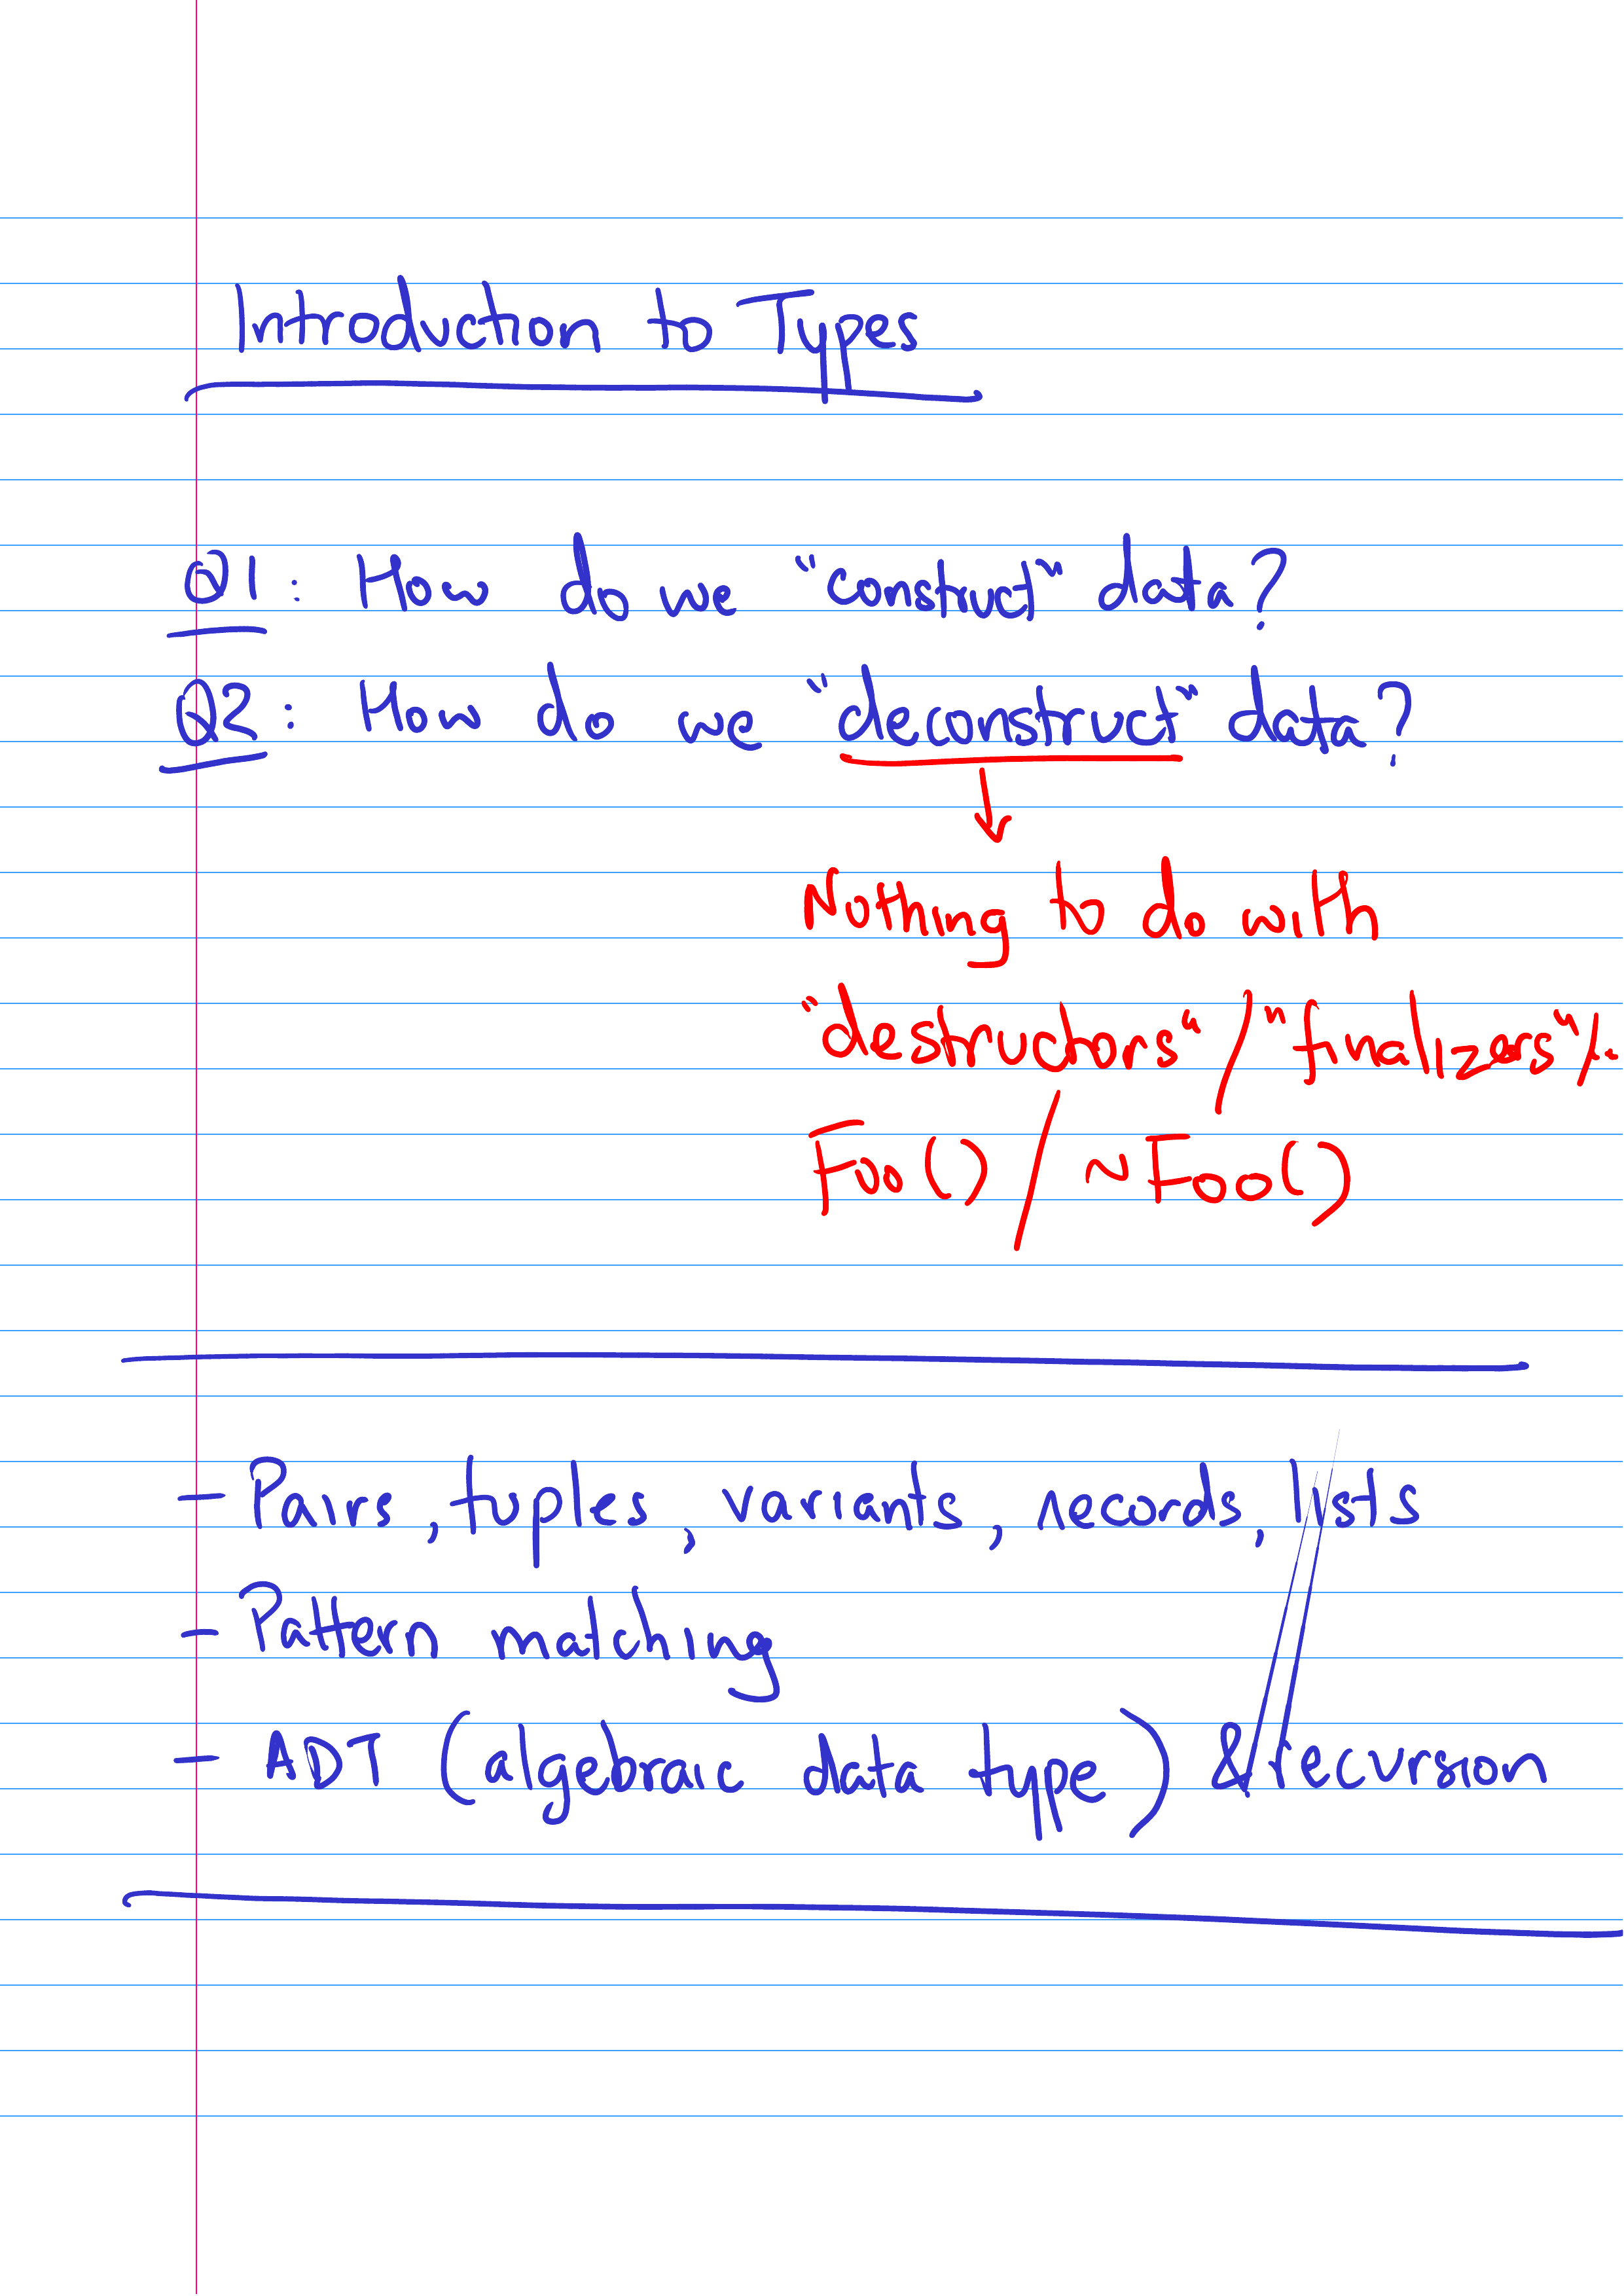 Introduction to Types
Q1: How do we "construct" data?
Q2: How do we "deconstruct" data?
Nothing to do with
"destructors" / "finalizers" /
Foo() / ~Foo()
- Pairs, tuples, variants, records, lists
- Pattern matching
- ADT (algebraic data type) & recursion